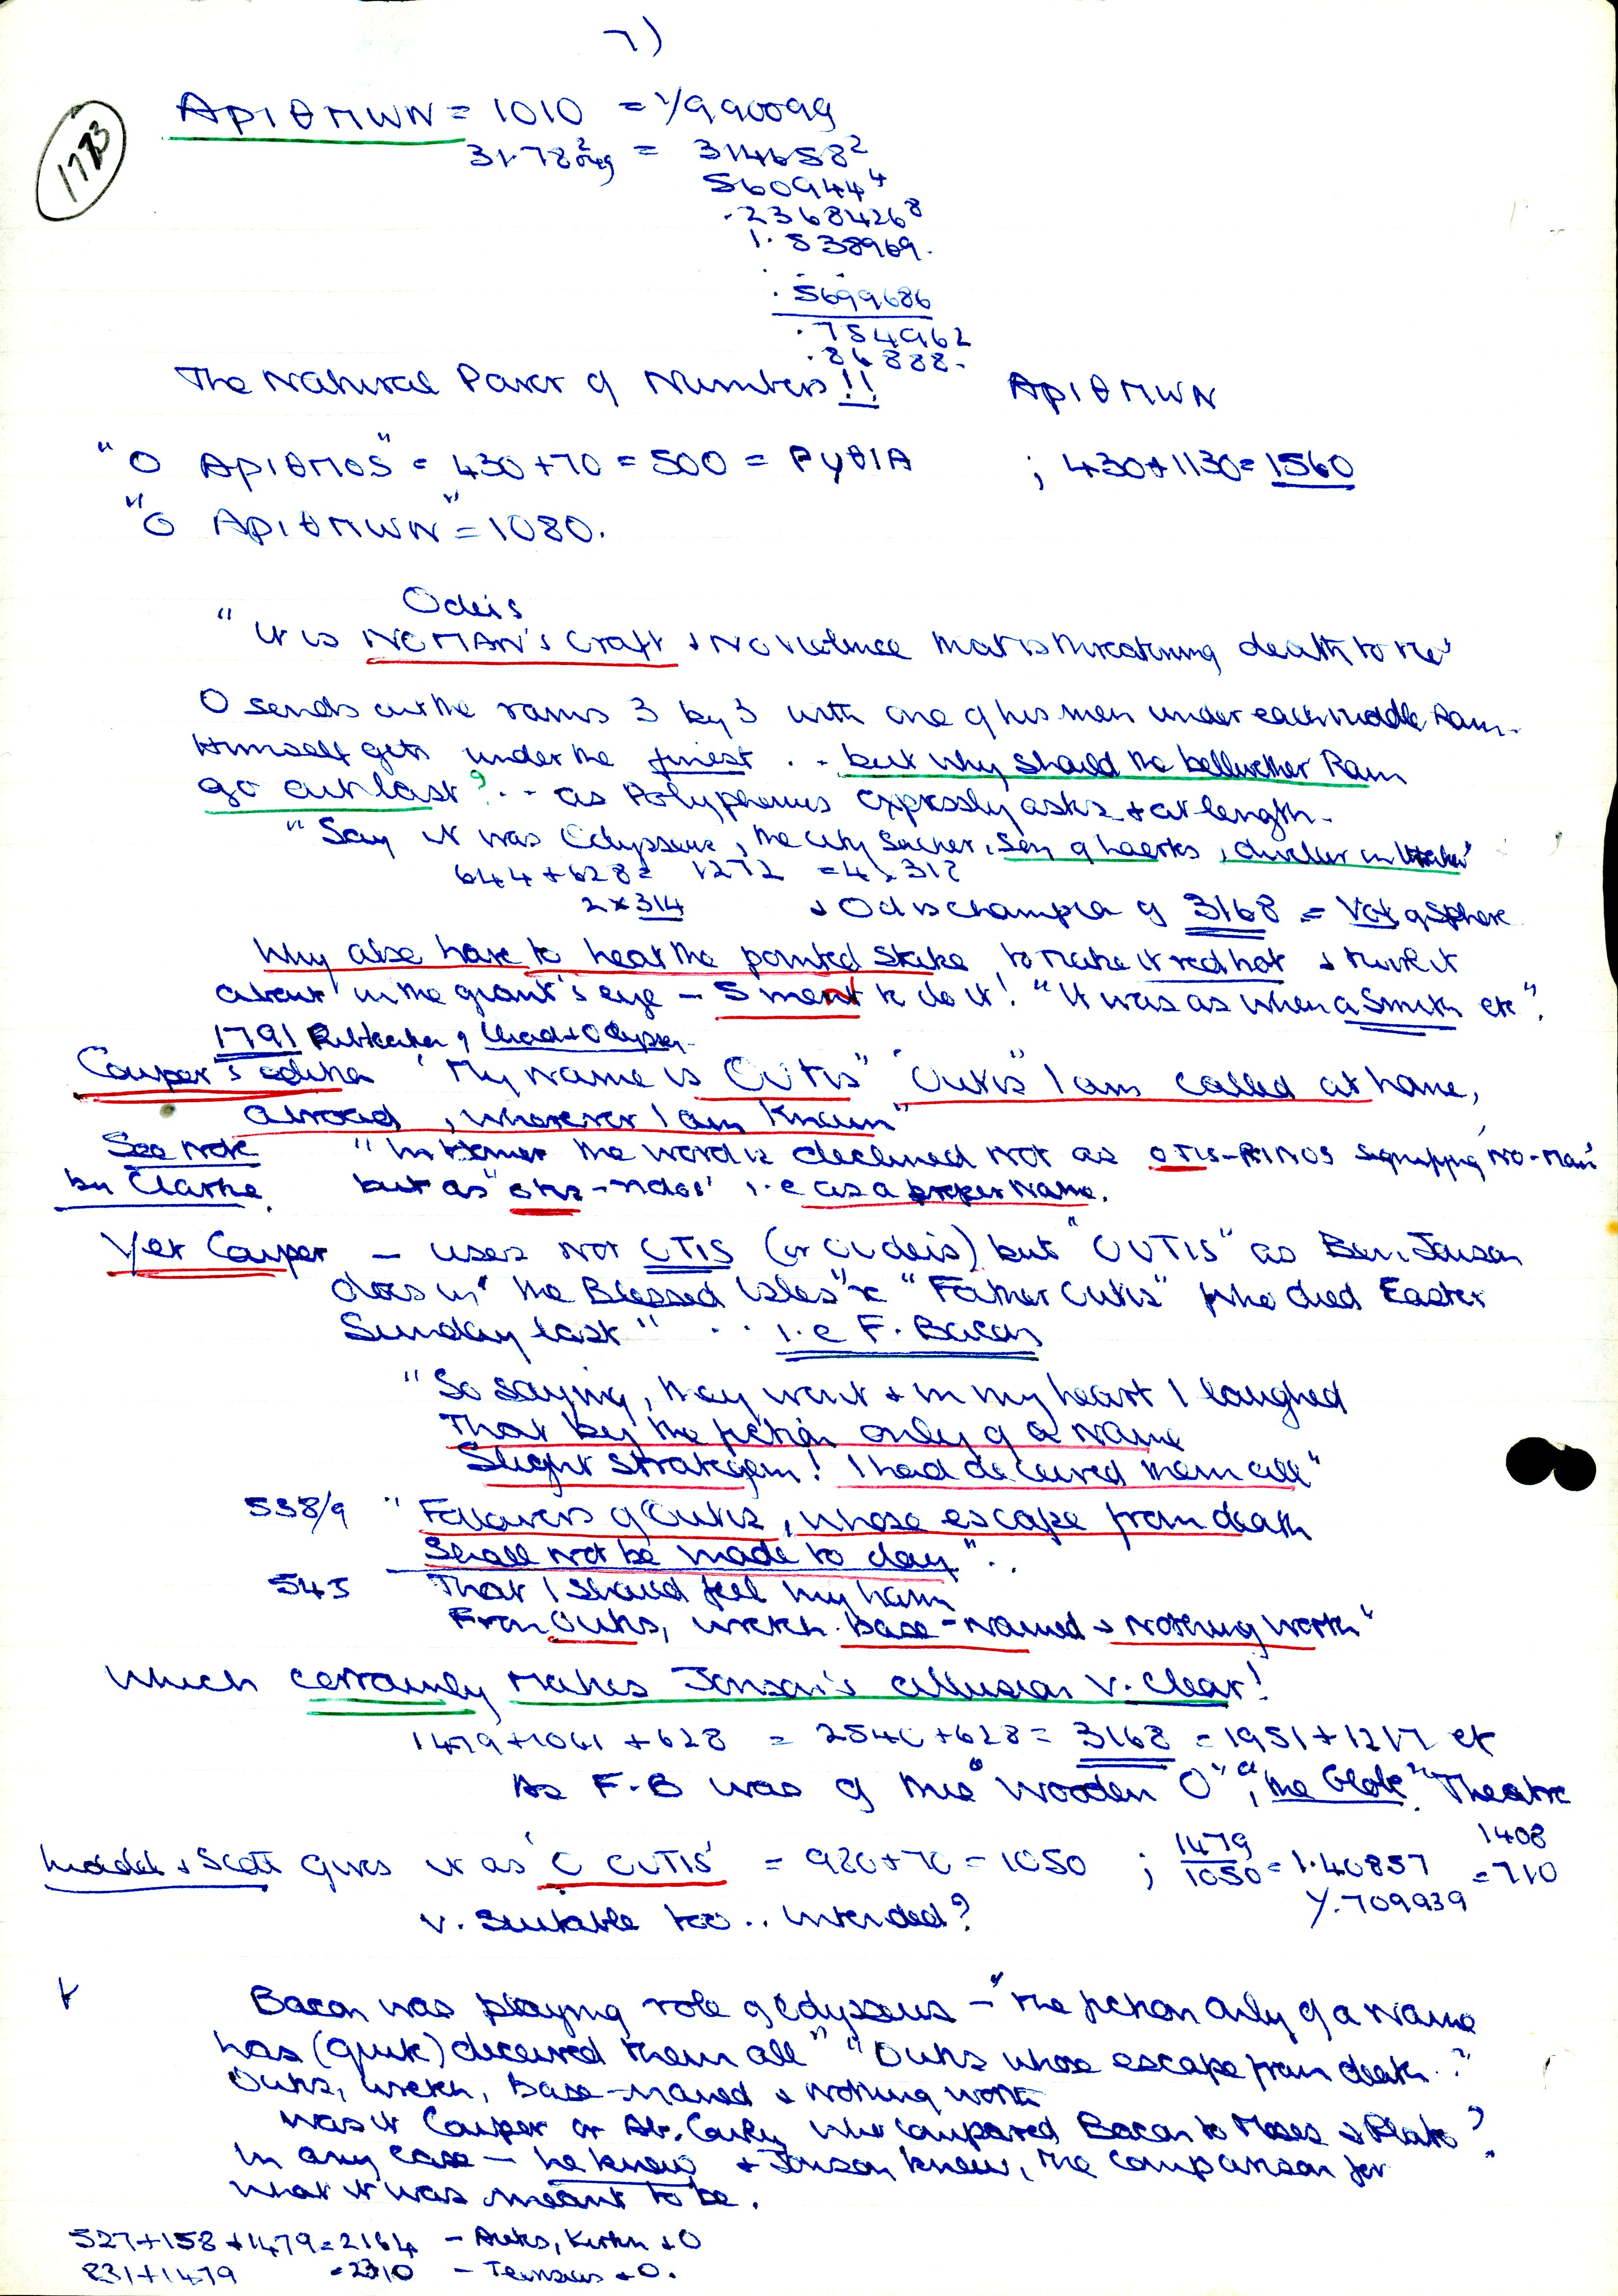 7)
1783
ApIθMWN = 1010 = 1/990099
31.78² = 314658²
560944⁴
.2368426⁸
1.538969.
.5699686
.754962
.86888.
The Natural Power of Numbers!! ApIθMWN
"O ApIθMOS" = 430+70 = 500 = PYθIA ; 430+1130 = 1560
"O ApIθMWN" = 1080.
Odeis
"It is NOMAN's Craft & No violence that is threatening death to me"
O sends out the rams 3 by 3 with one of his men under each middle Ram.
Himself gets under the finest .. but why should the bellwether Ram
go out last? .. as Polyphemus expressly asks & at length.
"Say it was Odysseus, the City Sacker, Son of Laertes, dweller in Ithaka"
644+628= 1272 = 4x318
2x314 & Od is champion of 3168 = Vol of Sphere
Why also have to heat the pointed Stake to make it red hot & twirl it
about in the giant's eye – 5 men to do it! "It was as when a Smith etc".
1791 Publication of Iliad & Odyssey.
Cowper's edition "My name is OUTIS" "Outis I am called at home,
abroad, wherever I am known"
See note "In Homer the word is declined not as OTIS-TINOS signifying no-man
by Clarke. but as "otis-tidos" i.e as a proper name.
Yet Cowper – uses not OTIS (or Oudeis) but "OUTIS" as Ben. Jonson
does in "the Blessed Isles" "Father Outis" who died Easter
Sunday last" .. i.e F. Bacon
"So saying, they went & in my heart I laughed
That by the fiction only of a name
Slight stratagem! I had deceived them all"
538/9 "Followers of Outis, whose escape from death
Shall not be made to day".
545 That I should feel my harm
From Outis, wretch base-named & nothing worth"
Which certainly makes Jonson's allusion v. clear!
1479+1061+628 = 2540+628 = 3168 = 1951+1217 etc
As F.B was of this "Wooden O", "the Globe" Theatre
Liddell & Scott gives it as 'O OUTIS' = 980+70 = 1050 ; 1479/1050 = 1.40857 1408 = 710
1/.709939
v. suitable too .. intended?
Bacon was playing role of Odysseus – "the fiction only of a name
has (quite) deceived them all" "Outis whose escape from death.?
Outis, wretch, base-named & nothing worth
was it Cowper or Ab. Cowley who compared Bacon to Moses & Plato?
In any case – he knew & Jonson knew, the comparison for
what it was meant to be.
527+158+1479=2164 – & O
831+1479 =2310 – & O.